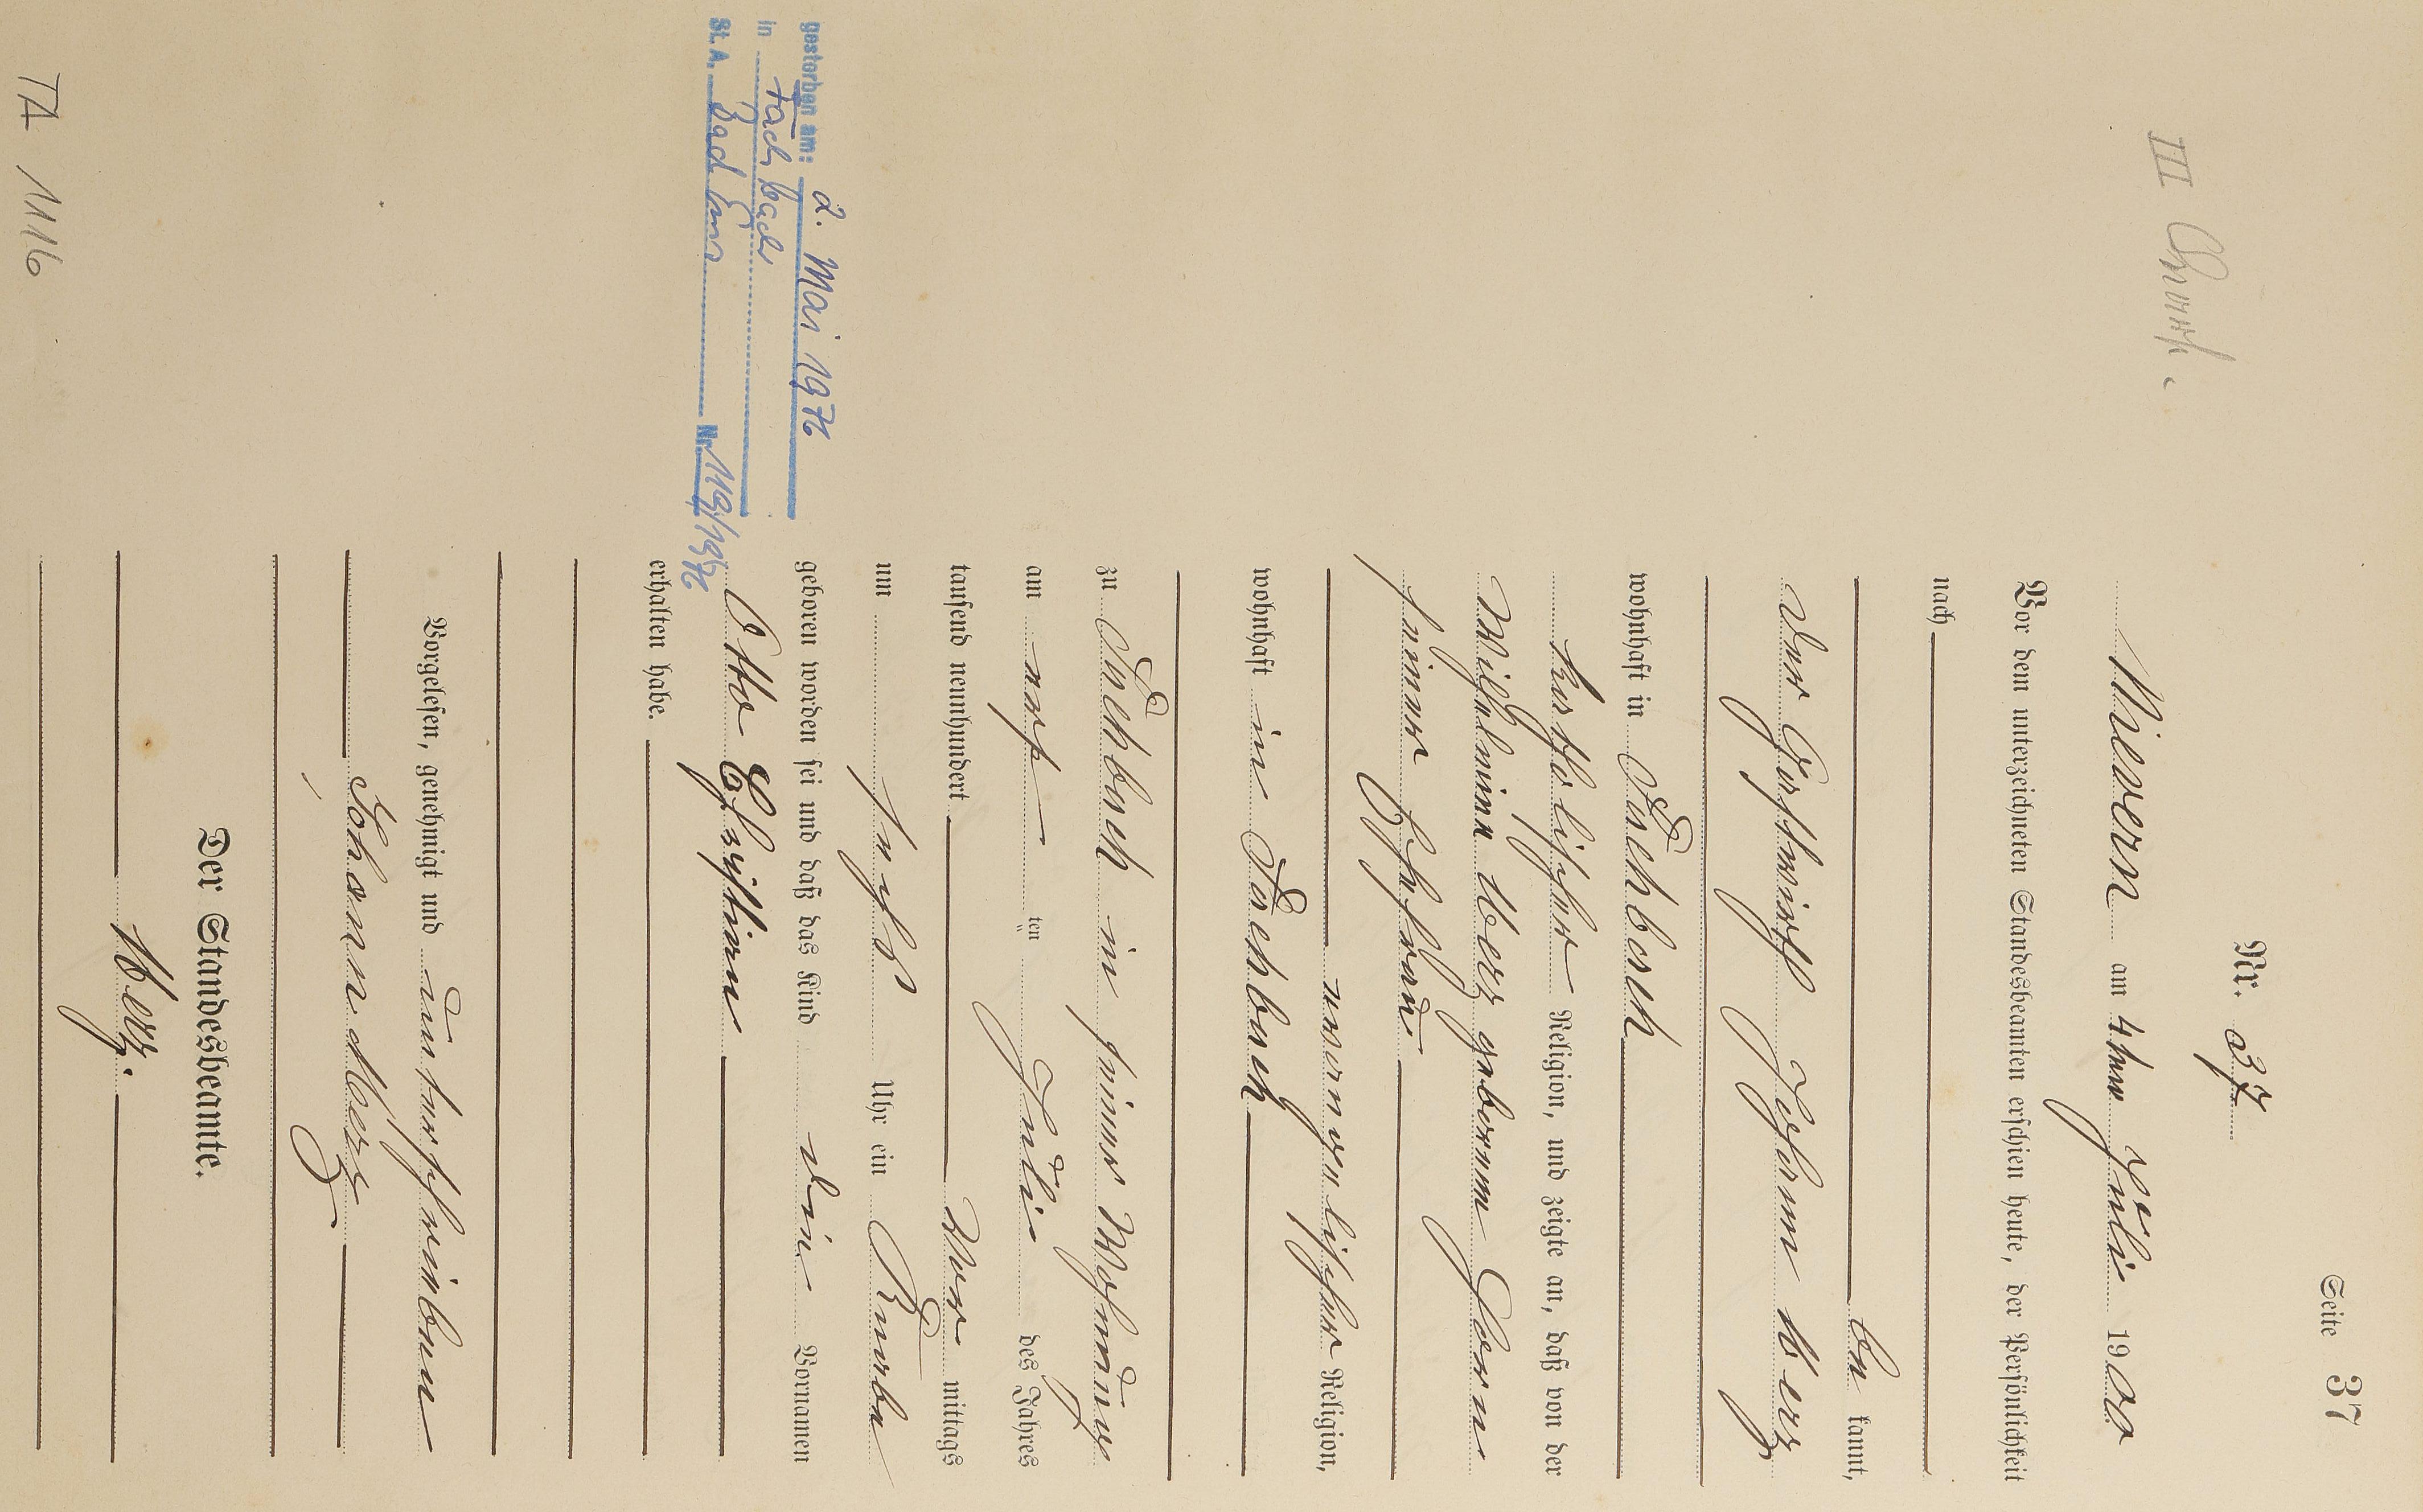 Seite 37
Nr. 37
III
Miesern am 4ten Juli 1900
Vor dem unterzeichneten Standesbeamten erschien heute, der Persönlichkeit
nach
be kannt,
der Gastwirth Johann Merz
wohnhaft in Fachbach
katholischer Religion, und zeigte an, daß von der
Wilhelmine Merz geborene Born
seiner Ehefrau
evangelischer Religion,
wohnhaft in Fachbach
zu Fachbach in seiner Wohnung
am ersten Juli des Jahres
tausend neunhundert Vor mittags
um sechs Uhr ein Knabe
geboren worden sei und daß das Kind die Vornamen
Otto Christian
erhalten habe.
Vorgelesen, genehmigt und unterschrieben
Johann Merz
Der Standesbeamte.
Merz.
gestorben am: 2. Mai 1972
in Fachbach
St. A. Bad Ems Nr. 119/1972
TA 1116